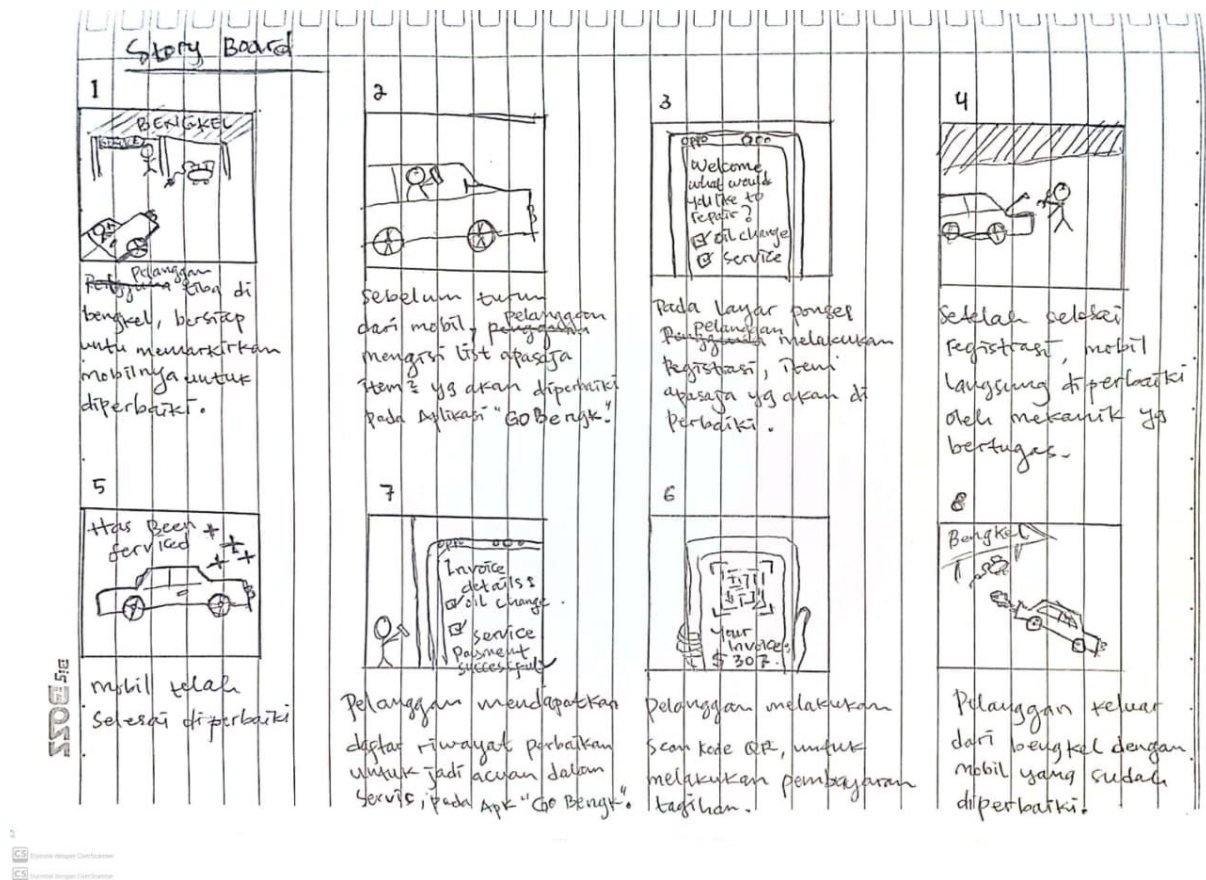 Story Board
1
BENGKEL
Pengguna pelanggan tiba di
bengkel, bersiap
untu memarkirkan
mobilnya untuk
diperbaiki.
2
sebelum turun
dari mobil, pengguna pelanggan
mengisi list apasaja
item² yg akan diperbaiki
pada Aplikasi "GO Bengk".
3
OPPO
Welcome
what would
you like to
repair?
oil change
service
Pada layar ponsel
Pengguna pelanggan melakukan
Registrasi, item
apasaja yg akan di
Perbaiki.
4
Setelah selesai
registrasi, mobil
langsung diperbaiki
oleh mekanik yg
bertugas.
5
Has Been
Serviced
mobil telah
selesai diperbaiki
7
OPPO
Invoice
detailss
oil change.
service
Payment
successful
Pelanggan mendapatkan
daftar riwayat perbaikan
untuk jadi acuan dalam
Servis, pada Apk "Go Bengk".
6
Your
Invoice:
$ 307.
pelanggan melakukan
scan kode QR, untuk
melakukan pembayaran
tagihan.
8
Bengkel
Pelanggan keluar
dari bengkel dengan
mobil yang sudah
diperbaiki.
CS
CS